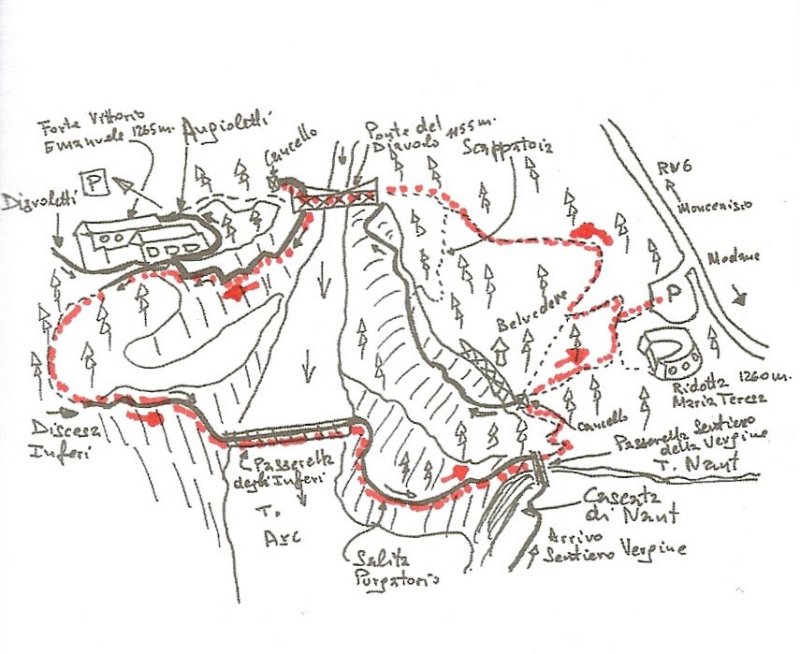 Forte Vittorio
Emanuele 1265m.
Angioletti
Cancello
Ponte del
Diavolo 1155m.
Scappatoia
RN6
Moncenisio
Modane
P
Diavoletti
Belvedere
P
Ridotta 1260m.
Maria Teresa
Cancello
Passerella Sentiero
della Vergine
T. Nant
Discesa
Inferi
Passerella
degli Inferi
T.
Arc
Cascata
di Nant
Arrivo
Sentiero Vergine
Salita
Purgatorio